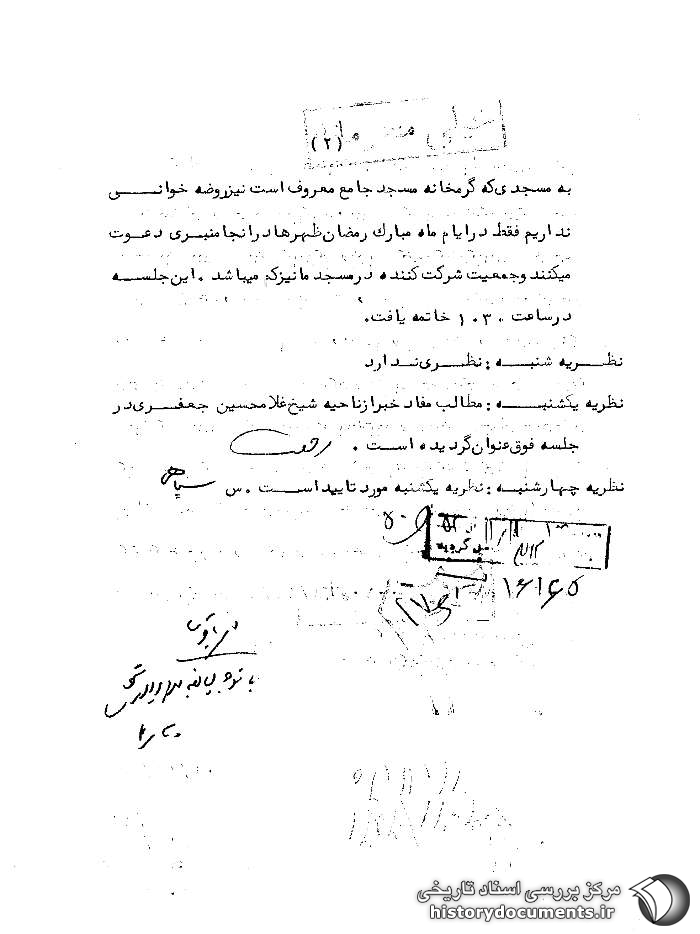 خیلی محرمانه
(۲)
به مسجدی که گرمخانه مسجد جامع معروف است نیز روضه خوانی
نداریم فقط در ایام ماه مبارك رمضان ظهرها در انجا منبری دعوت
میکنند و جمعیت شرکت کننده در مسجد ما نیز کم میباشد . این جلسه
در ساعت ۱۰۳۰ خاتمه یافت.
نظریه شنبه : نظری ندارد
نظریه یکشنبه : مطالب مفاد خبر از ناحیه شیخ غلامحسین جعفری در
جلسه فوق عنوان گردیده است .
نظریه چهارشنبه : نظریه یکشنبه مورد تایید است . س
۱۶۱۶۵
مرکز بررسی اسناد تاریخی
historydocuments.ir